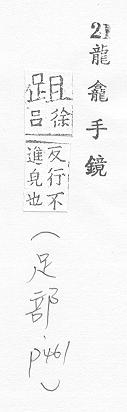 21 龍龕手鏡
跙
徐
呂
反行不
進皃也
（足部 p461）